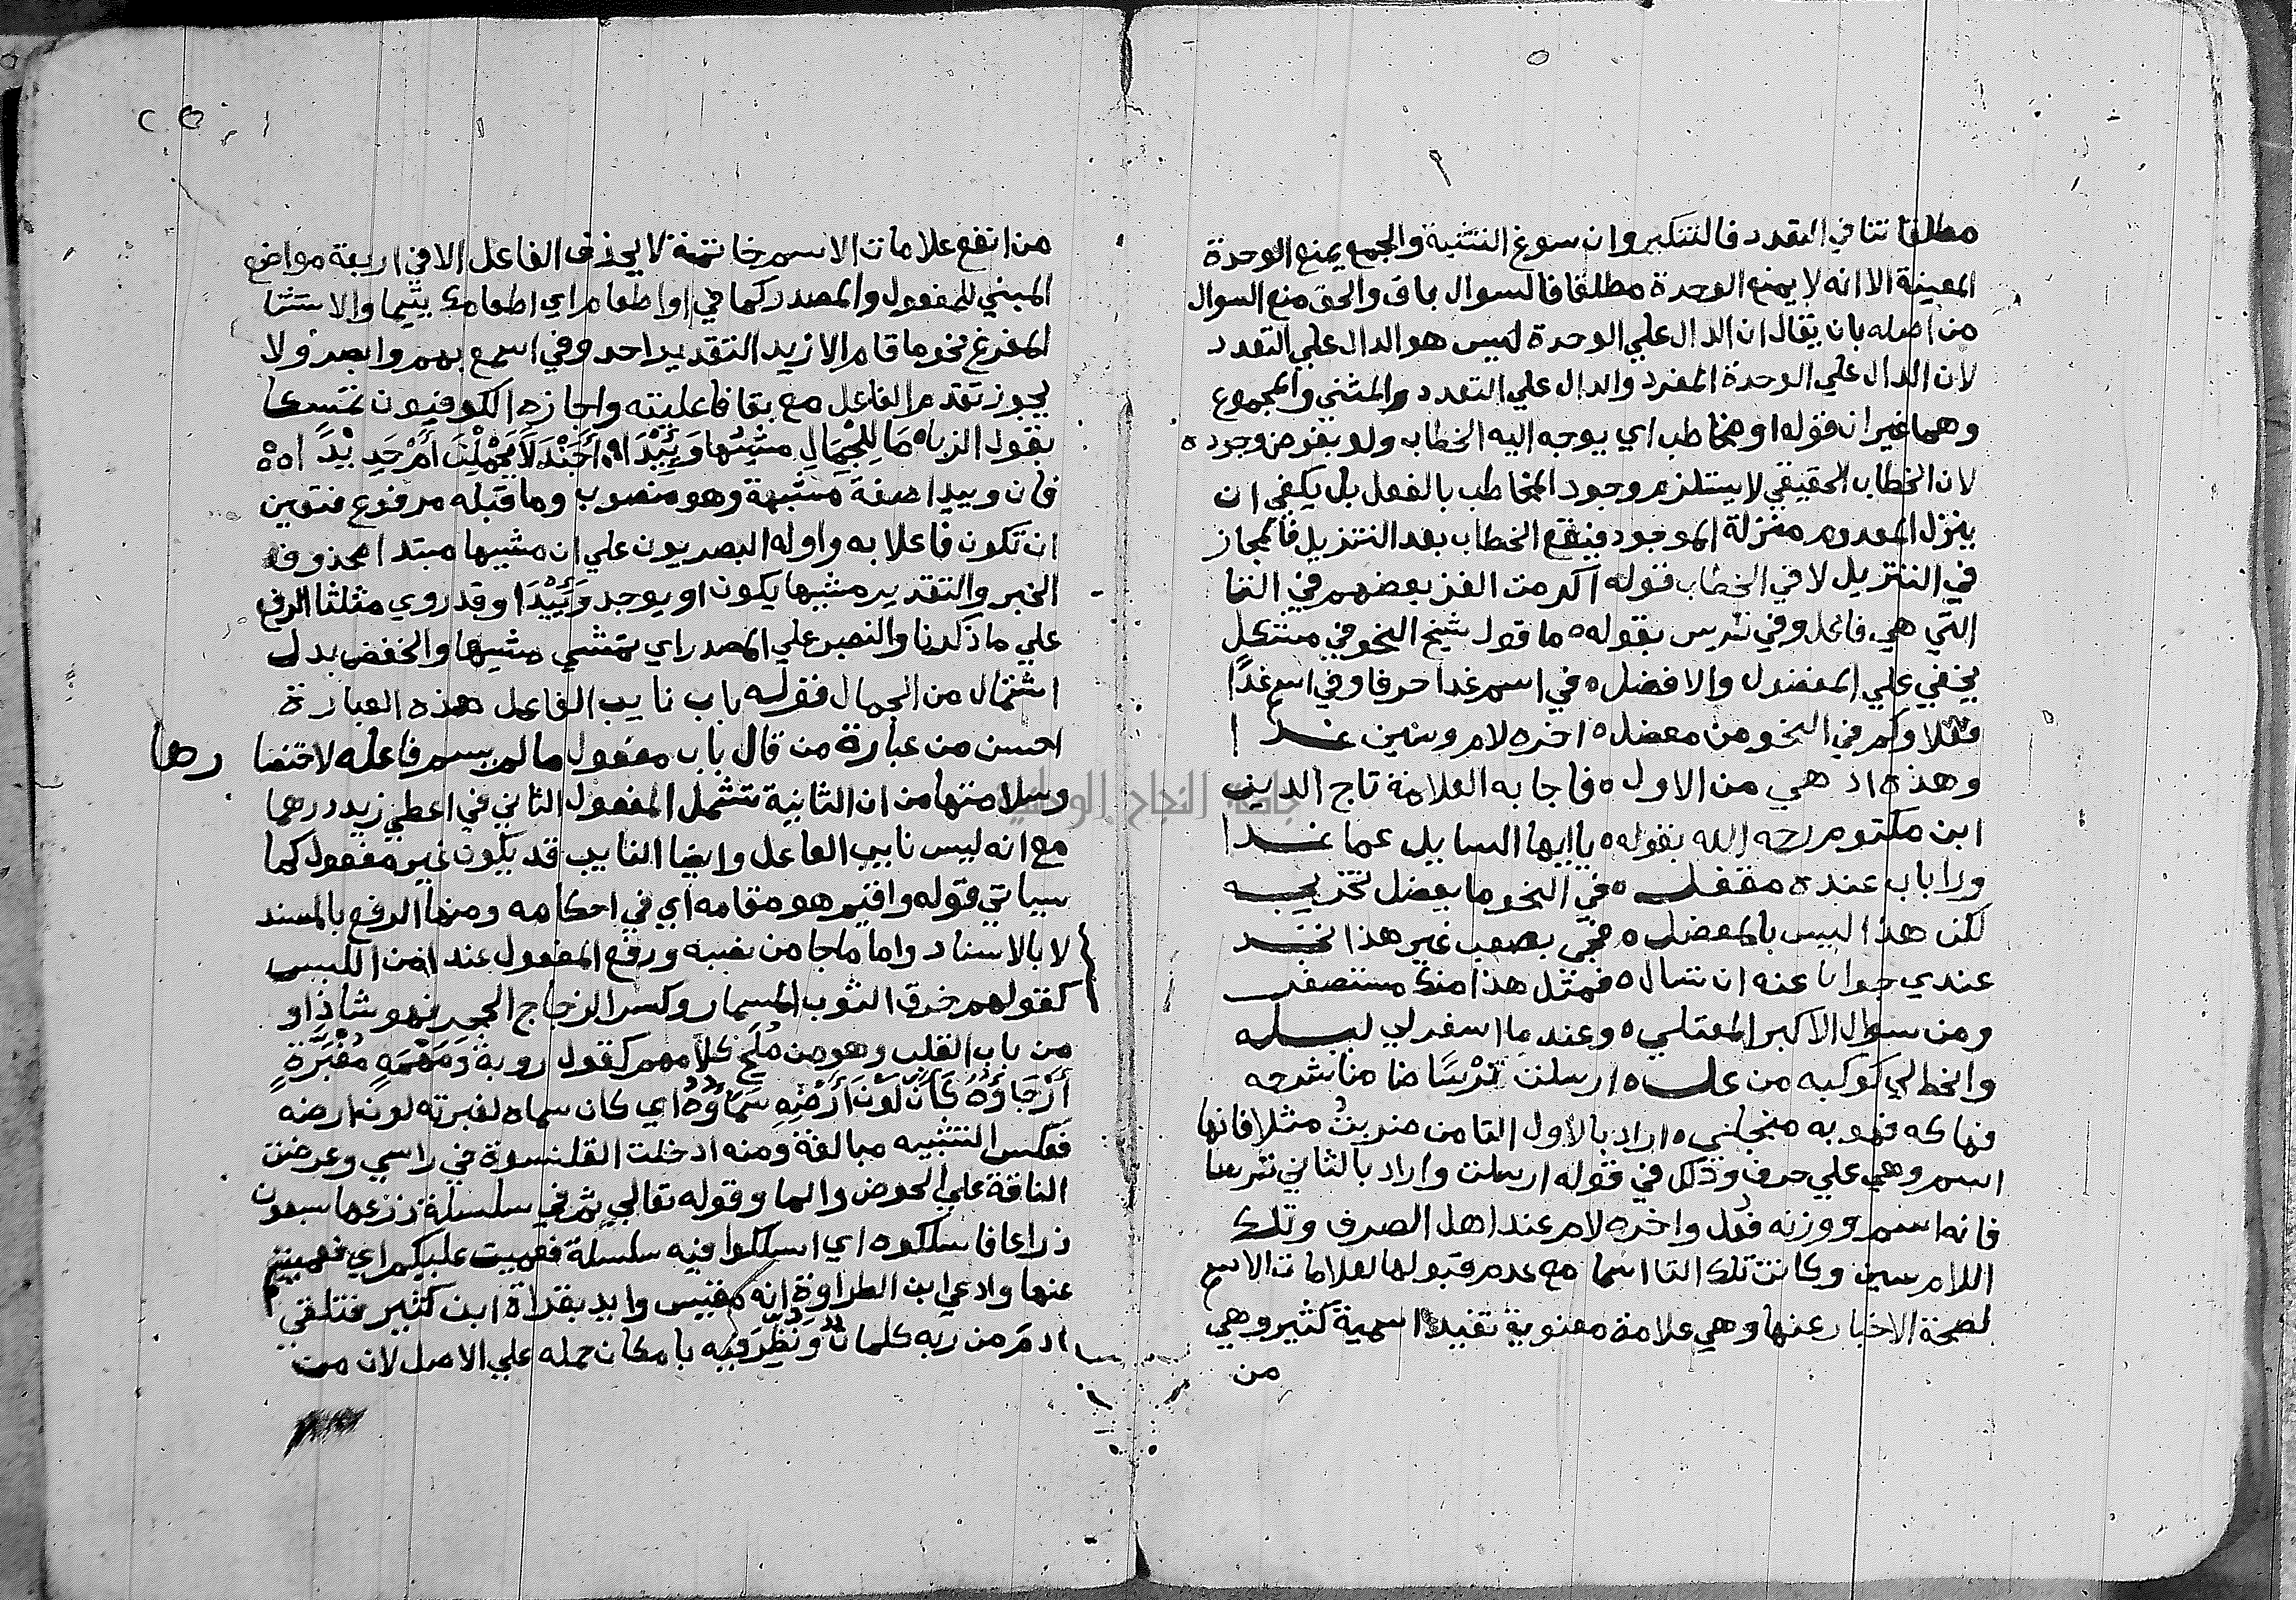 مطلقا تنافي التعدد فالتنكير وان سوغ التثنية والجمع يمنع الوحدة
المعينة الا انه لا يمنع الوحدة مطلقا فالسوال باق والحق منع السوال
من اصله بان يقال ان الدال علي الوحدة ليس هو الدال علي التعدد
لان الدال علي الوحدة المفرد والدال علي التعدد والمثني والمجموع
وهما غيران قوله او مخاطب اي يوجه اليه الخطاب ولو بفرض وجوده
لان الخطاب الحقيقي لا يستلزم وجود المخاطب بالفعل بل يكفي ان
ينزل المعدوم منزلة الموجود فيقع الخطاب بعد التنزيل فالمجاز
في التنزيل لا في الخطاب قوله اكرمت الغز بعضهم في التا
التي هي فاعل وفي ترس بقوله ما قول شيخ النحو في مشكل
يخفي علي المفضول والافضل في اسم غدا حرفا وفي اسم غدا
فعلا وكم في النحو من معضل اخره لام وسين غدا
وهذه اذ هي من الاول فاجابه العلامة تاج الدين
ابن مكتوم رحمه الله بقوله يا ايها السايل عما غدا
وراباب عنده مقفل في النحو ما يعضل تخريجه
لكن هذا ليس بالمعضل يصعب غير هذا
عندي جوابا عنه ان تسال فمثل هذا منك مستصعب
ومن سوال الاكبر المعتلي وعند ما اسفر لي ليله
وانحط لي كوكبه من عل ارسلت ترسا ضامنا شرحه
فهاكه فهو به منجلي اراد بالاول التا من ضربت مثلا فانها
اسم وهي علي حرف وذلك في قوله ارسلت واراد بالثاني ترسا
فانه اسم ووزنه فعل واخره لام عند اهل الصرف وتلك
اللام سين وكانت تلك التا اسما مع عدم قبولها لعلامات الاسم
لصحة الاخبار عنها وهي علامة معنوية تفيد اسمية كثير وهي
من
من انفع علامات الاسم خاتمة لا يحذف الفاعل الا في اربعة مواضع
المبني للمفعول والمصدر كما في او اطعام اي اطعامه يتيما والاستثنا
المفرغ نحو ما قام الا زيد التقدير احد وفي اسمع بهم وابصر ولا
يجوز تقدم الفاعل مع بقا فاعليته واجازه الكوفيون تمسكا
بقول الزباه مَا لِلْجِمَالِ مَشْيُهَا وَئِيْدَا أَجَنْدَلًا يَحْمِلْنَ أَمْ حَدِيْدَا اه
فان وييدا صفة مشبهة وهو منصوب وما قبله مرفوع فتعين
ان تكون فاعلا به واوله البصريون علي ان مشيها مبتدا محذوف
الخبر والتقدير مشيها يكون او يوجد وَئِيْدَا وقد روي مثلثا الرفع
علي ما ذكرنا والنصب علي المصدر اي تمشي مشيها والخفض بدل
اشتمال من الجمال قوله باب نايب الفاعل هذه العبارة
احسن من عبارة من قال باب مفعول ما لم يسم فاعله لاختصا رها
وسلامتها من ان الثانية تشمل المفعول الثاني في اعطي زيد درهما
مع انه ليس نايب الفاعل وايضا النايب قد يكون غير مفعول كما
سياتي قوله واقيم هو مقامه اي في احكامه ومنها الرفع بالمسند
لا بالاسناد واما ما جا من نصبه ورفع المفعول عند امن اللبس
كقولهم خرق الثوب المسمار وكسر الزجاج الحجر فهو شاذ او
من باب القلب وهو من مُلَح كلامهم كقول روبة وَمَهْمَهٍ مُغْبَرَّةٍ
أَرْجَاؤُهُ كَأَنَّ لَوْنَ أَرْضِهِ سَمَاؤُهُ اي كان سماه لغبرته لون ارضه
فعكس التشبيه مبالغة ومنه ادخلت القلنسوة في راسي وعرضت
الناقة علي الحوض والما وقوله تعالي ثم في سلسلة ذرعها سبعون
ذراعا فاسلكوه اي اسلكوا فيه سلسلة فعميت عليكم اي فعميتم
عنها وادعي ابن الطراوة انه مقيس وايد بقراة ابن كثير فتلقي
ادمَ من ربه كلماتٌ وَنُظِّرَ فيه بامكان حمله علي الاصل لان من
جامعة النجاح الوطنية